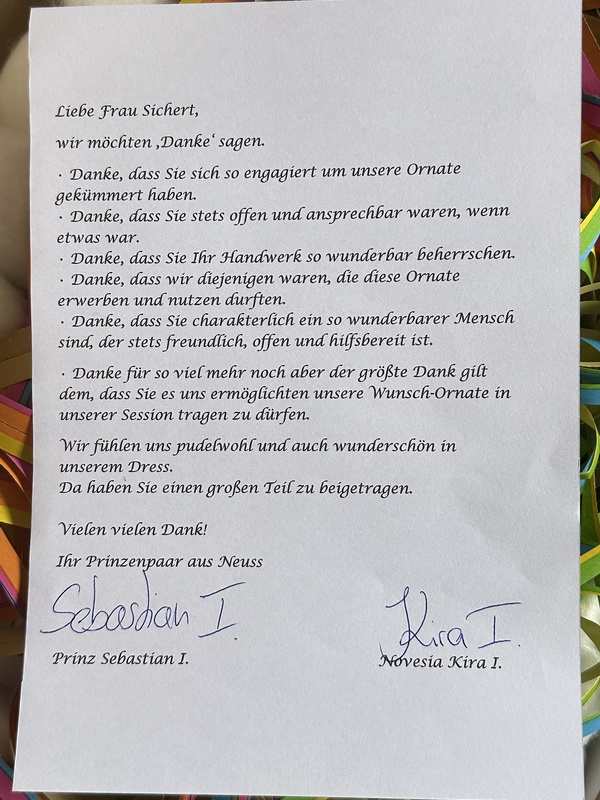 Liebe Frau Sichert,
wir möchten ‚Danke‘ sagen.
· Danke, dass Sie sich so engagiert um unsere Ornate
gekümmert haben.
· Danke, dass Sie stets offen und ansprechbar waren, wenn
etwas war.
· Danke, dass Sie Ihr Handwerk so wunderbar beherrschen.
· Danke, dass wir diejenigen waren, die diese Ornate
erwerben und nutzen durften.
· Danke, dass Sie charakterlich ein so wunderbarer Mensch
sind, der stets freundlich, offen und hilfsbereit ist.
· Danke für so viel mehr noch aber der größte Dank gilt
dem, dass Sie es uns ermöglichten unsere Wunsch-Ornate in
unserer Session tragen zu dürfen.
Wir fühlen uns pudelwohl und auch wunderschön in
unserem Dress.
Da haben Sie einen großen Teil zu beigetragen.
Vielen vielen Dank!
Ihr Prinzenpaar aus Neuss
Sebastian I. Kira I.
Prinz Sebastian I. Novesia Kira I.